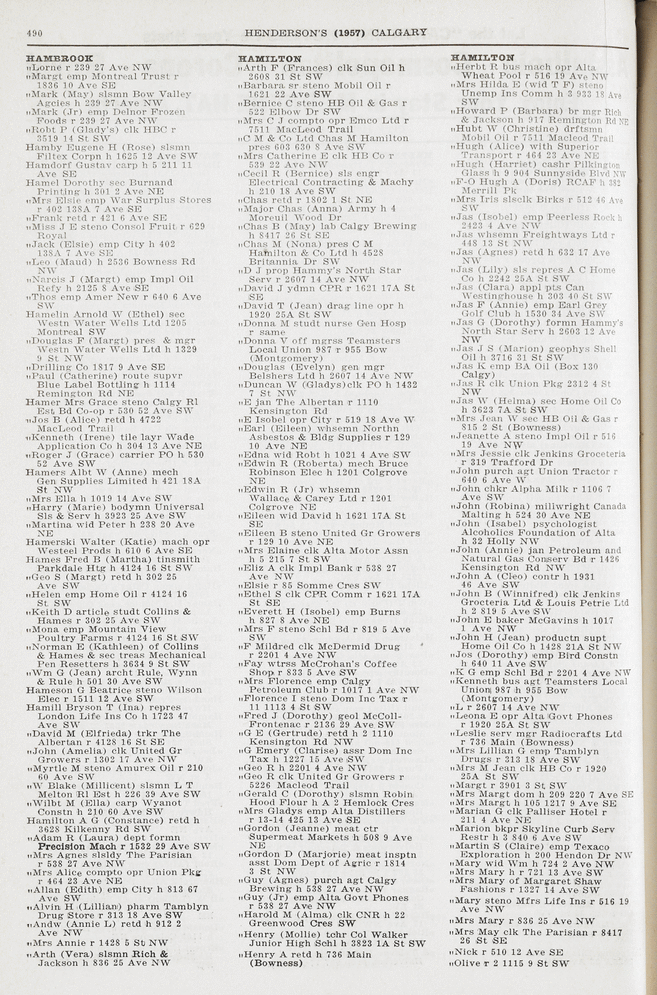 490
HENDERSON'S (1957) CALGARY
HAMBROOK
„Lorne r 239 27 Ave NW
„Margt emp Montreal Trust r
1836 10 Ave SE
„Mark (May) slsmn Bow Valley
Agcies h 239 27 Ave NW
„Mark (Jr) emp Delnor Frozen
Foods r 239 27 Ave NW
„Robt P (Glady's) clk HBC r
3519 14 St SW
Hamby Eugene H (Rose) slsmn
Filtex Corpn h 1625 12 Ave SW
Hamdorf Gustav carp h 5 211 11
Ave SE
Hamel Dorothy sec Burnand
Printing h 301 2 Ave NE
„Mrs Elsie emp War Surplus Stores
r 402 138A 7 Ave SE
„Frank retd r 421 6 Ave SE
„Miss J E steno Consol Fruit r 629
Royal
„Jack (Elsie) emp City h 402
138A 7 Ave SE
„Leo (Maud) h 2536 Bowness Rd
NW
„Narcis J (Margt) emp Impl Oil
Refy h 2125 8 Ave SE
„Thos emp Amer New r 640 6 Ave
SW
Hamelin Arnold W (Ethel) sec
Westn Water Wells Ltd 1205
Montreal SW
„Douglas F (Margt) pres & mgr
Westn Water Wells Ltd h 1329
9 St NW
„Drilling Co 1817 9 Ave SE
„Paul (Catherine) route supvr
Blue Label Bottling h 1114
Remington Rd NE
Hamer Mrs Grace steno Calgry Rl
Est Bd Co-op r 530 52 Ave SW
„Jos B (Alice) retd h 4722
MacLeod Trail
„Kenneth (Irene) tile layr Wade
Application Co h 304 13 Ave NE
„Roger J (Grace) carrier PO h 530
52 Ave SW
Hamers Albt W (Anne) mech
Gen Supplies Limited h 421 18A
St NW
„Mrs Ella h 1019 14 Ave SW
„Harry (Marie) bodymn Universal
Sls & Serv h 3923 25 Ave SW
„Martina wid Peter h 238 20 Ave
NE
Hamerski Walter (Katie) mach opr
Westeel Prods h 610 6 Ave SE
Hames Fred B (Martha) tinsmith
Parkdale Htg h 4124 16 St SW
„Geo S (Margt) retd h 302 25
Ave SW
„Helen emp Home Oil r 4124 16
St SW
„Keith D article studt Collins &
Hames r 302 25 Ave SW
„Mona emp Mountain View
Poultry Farms r 4124 16 St SW
„Norman E (Kathleen) of Collins
& Hames & sec treas Mechanical
Pen Resetters h 3634 9 St SW
„Wm G (Jean) archt Rule, Wynn
& Rule h 501 30 Ave SW
Hameson G Beatrice steno Wilson
Elec r 1511 12 Ave SW
Hamill Bryson T (Ina) repres
London Life Ins Co h 1723 47
Ave SW
„David M (Elfrieda) trkr The
Albertan r 4128 16 St SE
„John (Amelia) clk United Gr
Growers r 1302 17 Ave NW
„Myrtle M steno Amurex Oil r 210
60 Ave SW
„W Blake (Millicent) slsmn L T
Melton Rl Est h 226 39 Ave SW
„Wilbt M (Ella) carp Wyanot
Constn h 210 60 Ave SW
Hamilton A G (Constance) retd h
3628 Kilkenny Rd SW
„Adam R (Laura) dept formn
Precision Mach r 1532 29 Ave SW
„Mrs Agnes slsldy The Parisian
r 538 27 Ave NW
„Mrs Alice compto opr Union Pkg
r 464 23 Ave NE
„Allan (Edith) emp City h 813 67
Ave SW
„Alvin H (Lillian) pharm Tamblyn
Drug Store r 313 18 Ave SW
„Andw (Annie L) retd h 912 2
Ave NW
„Mrs Annie r 1428 5 St NW
„Arth (Vera) slsmn Rich &
Jackson h 836 25 Ave NW
HAMILTON
„Arth F (Frances) clk Sun Oil h
2608 31 St SW
„Barbara sr steno Mobil Oil r
1621 22 Ave SW
„Bernice C steno HB Oil & Gas r
522 Elbow Dr SW
„Mrs C J compto opr Emco Ltd r
7511 MacLeod Trail
„C M & Co Ltd Chas M Hamilton
pres 603 630 8 Ave SW
„Mrs Catherine E clk HB Co r
539 22 Ave NW
„Cecil R (Bernice) sls engr
Electrical Contracting & Machy
h 210 18 Ave SW
„Chas retd r 1802 1 St NE
„Major Chas (Anna) Army h 4
Moreuil Wood Dr
„Chas B (May) lab Calgy Brewing
h 8417 26 St SE
„Chas M (Nona) pres C M
Hamilton & Co Ltd h 4528
Britannia Dr SW
„D J prop Hammy's North Star
Serv r 2607 14 Ave NW
„David J ydmn CPR r 1621 17A St
SE
„David T (Jean) drag line opr h
1920 25A St SW
„Donna M studt nurse Gen Hosp
r same
„Donna V off mgrss Teamsters
Local Union 987 r 955 Bow
(Montgomery)
„Douglas (Evelyn) gen mgr
Belshers Ltd h 2607 14 Ave NW
„Duncan W (Gladys)clk PO h 1432
7 St NW
„E jan The Albertan r 1110
Kensington Rd
„E Isobel opr City r 519 18 Ave W
„Earl (Eileen) whsemn Northn
Asbestos & Bldg Supplies r 129
10 Ave NE
„Edna wid Robt h 1021 4 Ave SW
„Edwin R (Roberta) mech Bruce
Robinson Elec h 1201 Colgrove
NE
„Edwin R (Jr) whsemn
Wallace & Carey Ltd r 1201
Colgrove NE
„Eileen wid David h 1621 17A St
SE
„Eileen B steno United Gr Growers
r 129 10 Ave NE
„Mrs Elaine clk Alta Motor Assn
h 5 215 7 St SW
„Eliz A clk Impl Bank r 538 27
Ave NW
„Elsie r 85 Somme Cres SW
„Ethel S clk CPR Comm r 1621 17A
St SE
„Everett H (Isobel) emp Burns
h 827 8 Ave NE
„Mrs F steno Schl Bd r 819 5 Ave
SW
„F Mildred clk McDermid Drug
r 2201 4 Ave NW
„Fay wtrss McCrohan's Coffee
Shop r 833 5 Ave SW
„Mrs Florence emp Calgy
Petroleum Club r 1017 1 Ave NW
„Florence I steno Dom Inc Tax r
11 1113 4 St SW
„Fred J (Dorothy) geol McColl-
Frontenac r 2136 29 Ave SW
„G E (Gertrude) retd h 2 1110
Kensington Rd NW
„G Emery (Clarise) assr Dom Inc
Tax h 1227 15 Ave SW
„Geo R h 2201 4 Ave NW
„Geo R clk United Gr Growers r
5226 Macleod Trail
„Gerald C (Dorothy) slsmn Robin
Hood Flour h A 2 Hemlock Cres
„Mrs Gladys emp Alta Distillers
r 13-14 425 13 Ave SE
„Gordon (Jeanne) meat ctr
Supermeat Markets h 508 9 Ave
NE
„Gordon D (Marjorie) meat insptn
asst Dom Dept of Agric r 1814
3 St NW
„Guy (Agnes) purch agt Calgy
Brewing h 538 27 Ave NW
„Guy (Jr) emp Alta Govt Phones
r 538 27 Ave NW
„Harold M (Alma) clk CNR h 22
Greenwood Cres SW
„Henry (Mollie) tchr Col Walker
Junior High Schl h 3823 1A St SW
„Henry A retd h 736 Main
(Bowness)
HAMILTON
„Herbt R bus mach opr Alta
Wheat Pool r 516 19 Ave NW
„Mrs Hilda E (wid T F) steno
Unemp Ins Comm h 3 933 18 Ave
SW
„Howard P (Barbara) br mgr Rich
& Jackson h 917 Remington Rd NE
„Hubt W (Christine) drftsmn
Mobil Oil r 7511 Macleod Trail
„Hugh (Alice) with Superior
Transport r 464 23 Ave NE
„Hugh (Harriet) cashr Pilkington
Glass h 9 904 Sunnyside Blvd NW
„F-O Hugh A (Doris) RCAF h 382
Merrill Pk
„Mrs Iris slsclk Birks r 512 46 Ave
SW
„Jas (Isobel) emp Peerless Rock h
2423 4 Ave NW
„Jas whsemn Freightways Ltd r
448 13 St NW
„Jas (Agnes) retd h 632 17 Ave
NW
„Jas (Lily) sls repres A C Home
Co h 2242 25A St SW
„Jas (Clara) appl pts Can
Westinghouse h 303 40 St SW
„Jas F (Annie) emp Earl Grey
Golf Club h 1530 34 Ave SW
„Jas G (Dorothy) formn Hammy's
North Star Serv h 2603 12 Ave
NW
„Jas J S (Marion) geophys Shell
Oil h 3716 31 St SW
„Jas K emp BA Oil (Box 130
Calgy)
„Jas R clk Union Pkg 2312 4 St
NW
„Jas W (Helma) sec Home Oil Co
h 3623 7A St SW
„Mrs Jean W sec HB Oil & Gas r
815 2 St (Bowness)
„Jeanette A steno Impl Oil r 516
19 Ave NW
„Mrs Jessie clk Jenkins Groceteria
r 319 Trafford Dr
„John purch agt Union Tractor r
640 6 Ave W
„John chkr Alpha Milk r 1106 7
Ave SW
„John (Robina) millwright Canada
Malting h 524 30 Ave NE
„John (Isabel) psychologist
Alcoholics Foundation of Alta
h 32 Holly NW
„John (Annie) jan Petroleum and
Natural Gas Conserv Bd r 1426
Kensington Rd NW
„John A (Cleo) contr h 1931
46 Ave SW
„John B (Winnifred) clk Jenkins
Grocteria Ltd & Louis Petrie Ltd
h 2 819 5 Ave SW
„John E baker McGavins h 1017
1 Ave NW
„John H (Jean) productn supt
Home Oil Co h 1428 21A St NW
„Jos (Dorothy) emp Bird Constn
h 640 11 Ave SW
„K G emp Schl Bd r 2201 4 Ave NW
„Kenneth bus agt Teamsters Local
Union 987 h 955 Bow
(Montgomery)
„L r 2607 14 Ave NW
„Leona E opr Alta Govt Phones
r 1920 25A St SW
„Leslie serv mgr Radiocrafts Ltd
r 736 Main (Bowness)
„Mrs Lillian G emp Tamblyn
Drugs r 313 18 Ave SW
„Mrs M Jean clk HB Co r 1920
25A St SW
„Margt r 3901 3 St SW
„Mrs Margt dom h 209 220 7 Ave SE
„Mrs Margt h 105 1217 9 Ave SE
„Marian G clk Palliser Hotel r
211 4 Ave NE
„Marion bkpr Skyline Curb Serv
Restr h 3 840 6 Ave SW
„Martin S (Claire) emp Texaco
Exploration h 200 Hendon Dr NW
„Mary wid Wm h 724 2 Ave NW
„Mrs Mary h r 721 13 Ave SW
„Mrs Mary of Margaret Shaw
Fashions r 1327 14 Ave SW
„Mary steno Mfrs Life Ins r 516 19
Ave NW
„Mrs Mary r 836 25 Ave NW
„Mrs May clk The Parisian r 8417
26 St SE
„Nick r 510 12 Ave SE
„Olive r 2 1115 9 St SW